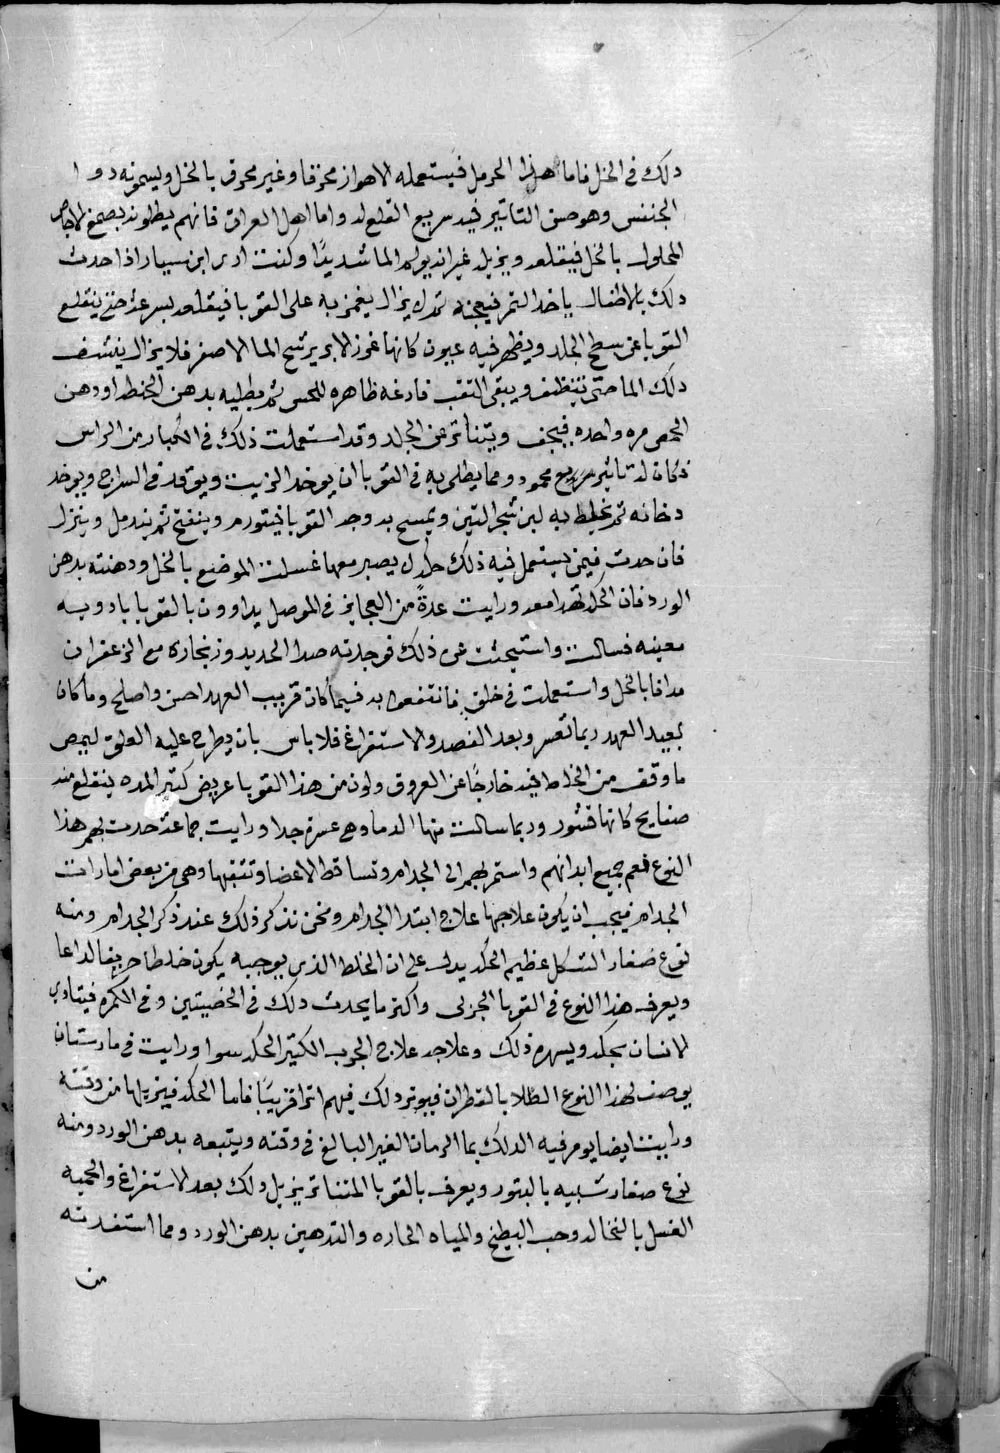 دلك في الخل فاما هذا الحرمل فيستعمله الاهواز محرقا وغير محرق بالخل ويسمونه دوا
الجننس وهو حسن التاتير فيه سريع القلع له واما اهل العراق فانهم يطلونه بصمغ الاجاص
المحلول بالخل فيقلعه ويزيله غير انه يولم الما شديدًا وكنت ادى ابن سيار اذا حدث
دلك بالاطفال ياخد التمر فيعجنه تم لا يزال يغمز به على القوبا فيقلعه بسرعة حتى ينقلع
القوبا عن سطح الجلد ويظهر فيه عيون كانها غرز الابر يرشح الما الاصفر فلا يزال ينشف
دلك الما حتى يتنظف ويبقى التقب فارغه ظاهره للحس ثم يطليه بدهن الحنطه او دهن
الحمص مره واحده فيجف ويتناتر عن الجلد وقد استعملت ذلك في الكبار من الراس
فكان له تاتير سريع محمود ومما يطلى به في القوبا ان يوخد الزيت ويوقد في السراج ويوخد
دخانه تم يخلط به لبن شجر التين ويمسح به وجه القوبا فيتورم وينفتح ثم يندمل وينزل
فان حدت فيمن يستعمل فيه ذلك حكه لا يصبر معها غسلت الموضع بالخل ودهنته بدهن
الورد فان الحكه تهدا معه ورايت عدةً من العجايز في الموصل يداوون بالقوبا بادويه
معينه فسالت واستبحثت عن ذلك فوجدته صدا الحديد وزنجاره مع الزعفران
مدافا بالخل واستعملت في خلق فانتفعوا به فيما كان قريب العهد احسن واصلح وما كان
بعيد العهد ربما تعسر وبعد الفصد والاستفراغ فلا باس بان يطرح عليه العلق ليمص
ما وقف من الخلط فيه خارجًا عن العروق ولون من هذا القوبا عريض كثير المده ينقلع منه
صفايح كانها قشور وربما سالت منها الدما وهي عسرة جدا ورايت جماعة حدت بهم هذا
النوع فعم جميع ابدانهم واستمر بهم الى الجدام وتساقط الاعضا وتثقبها وهي من بعض امارات
الجدام فيجب ان يكون علاجها علاج ابتدا الجدام ونحن نذكر ذلك عند ذكر الجدام ومنه
نوع صغار الشكل عظيم الحكه يدل على ان الخلط الذي يوجبه يكون خلطا حريفا لداعا
ويعرف هذا النوع في القوبا الجزلى واكتر ما يحدث دلك في الخصيتين وفي الكمره فيتاوى
الانسان بحكه ويسهره ذلك وعلاجه علاج الجرب الكتير الحكه سوا ورايت في مارستان
يوصف لهذا النوع الطلا بالقطران فيوتر دلك فيهم اترا قريبًا فاما الحكه فيزيلها من وقته
ورايت ايضا يومر فيه الدلك بما الرمان الغير البالغ في وقته ويتبعه بدهن الورد ومنه
نوع صغار شبيه بالبتور ويعرف بالقوبا المتناتر يزيل دلك بعد الاستفراغ والحميه
الغسل بالنخاله وحب البطيخ والمياه الحاره والتدهين بدهن الورد ومما استفدته
من